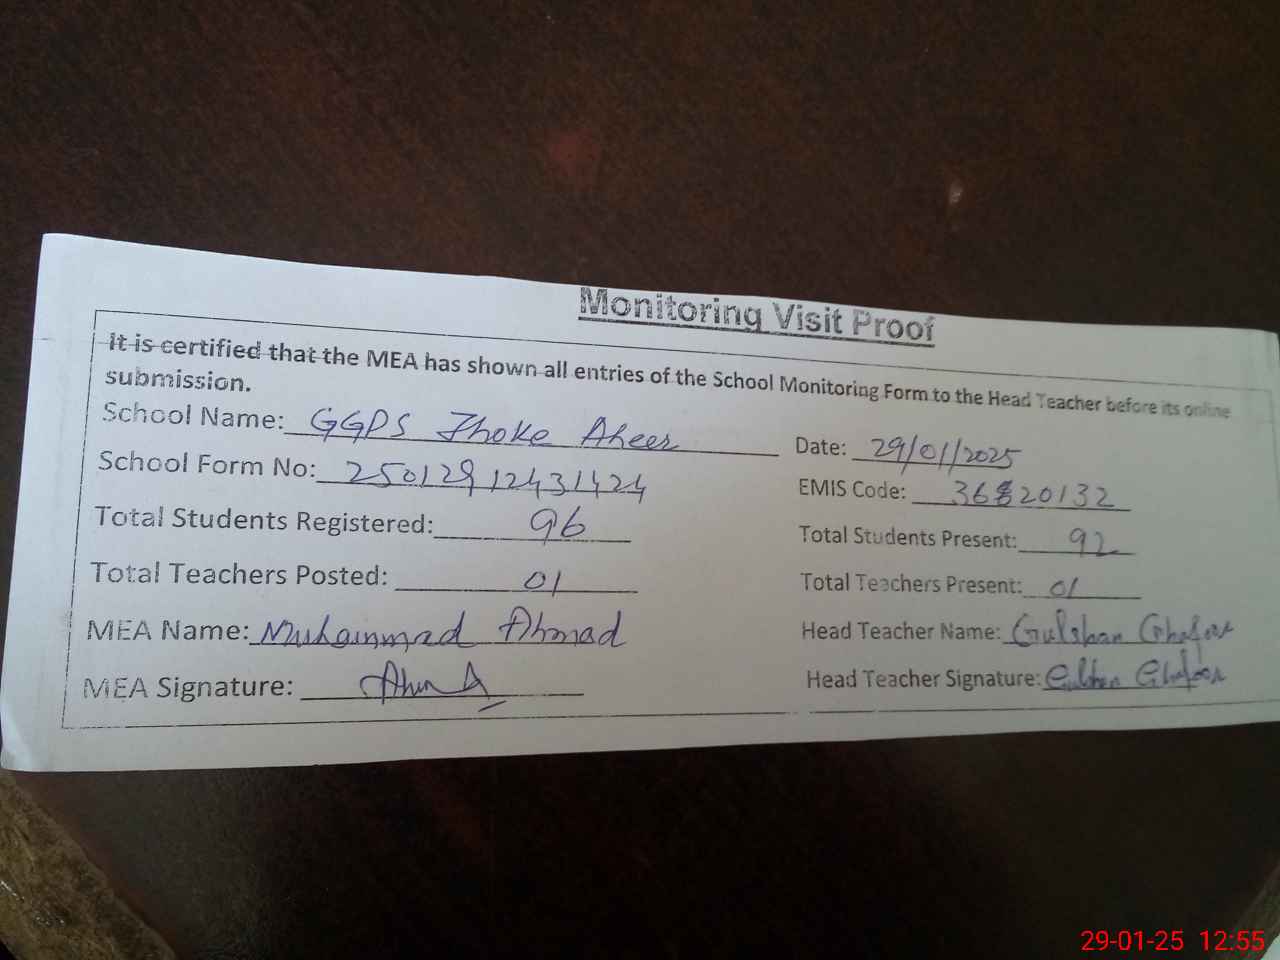 Monitoring Visit Proof
It is certified that the MEA has shown all entries of the School Monitoring Form to the Head Teacher before its online
submission.
School Name: GGPS Jhoke Aheer
Date: 29/01/2025
School Form No: 25012912431424
EMIS Code: 36820132
Total Students Registered: 96
Total Students Present: 92
Total Teachers Posted: 01
Total Teachers Present: 01
MEA Name: Muhammad Ahmad
Head Teacher Name: Gulshan Ghafoor
MEA Signature:
Head Teacher Signature: Gulshan Ghafoor
29-01-25 12:55